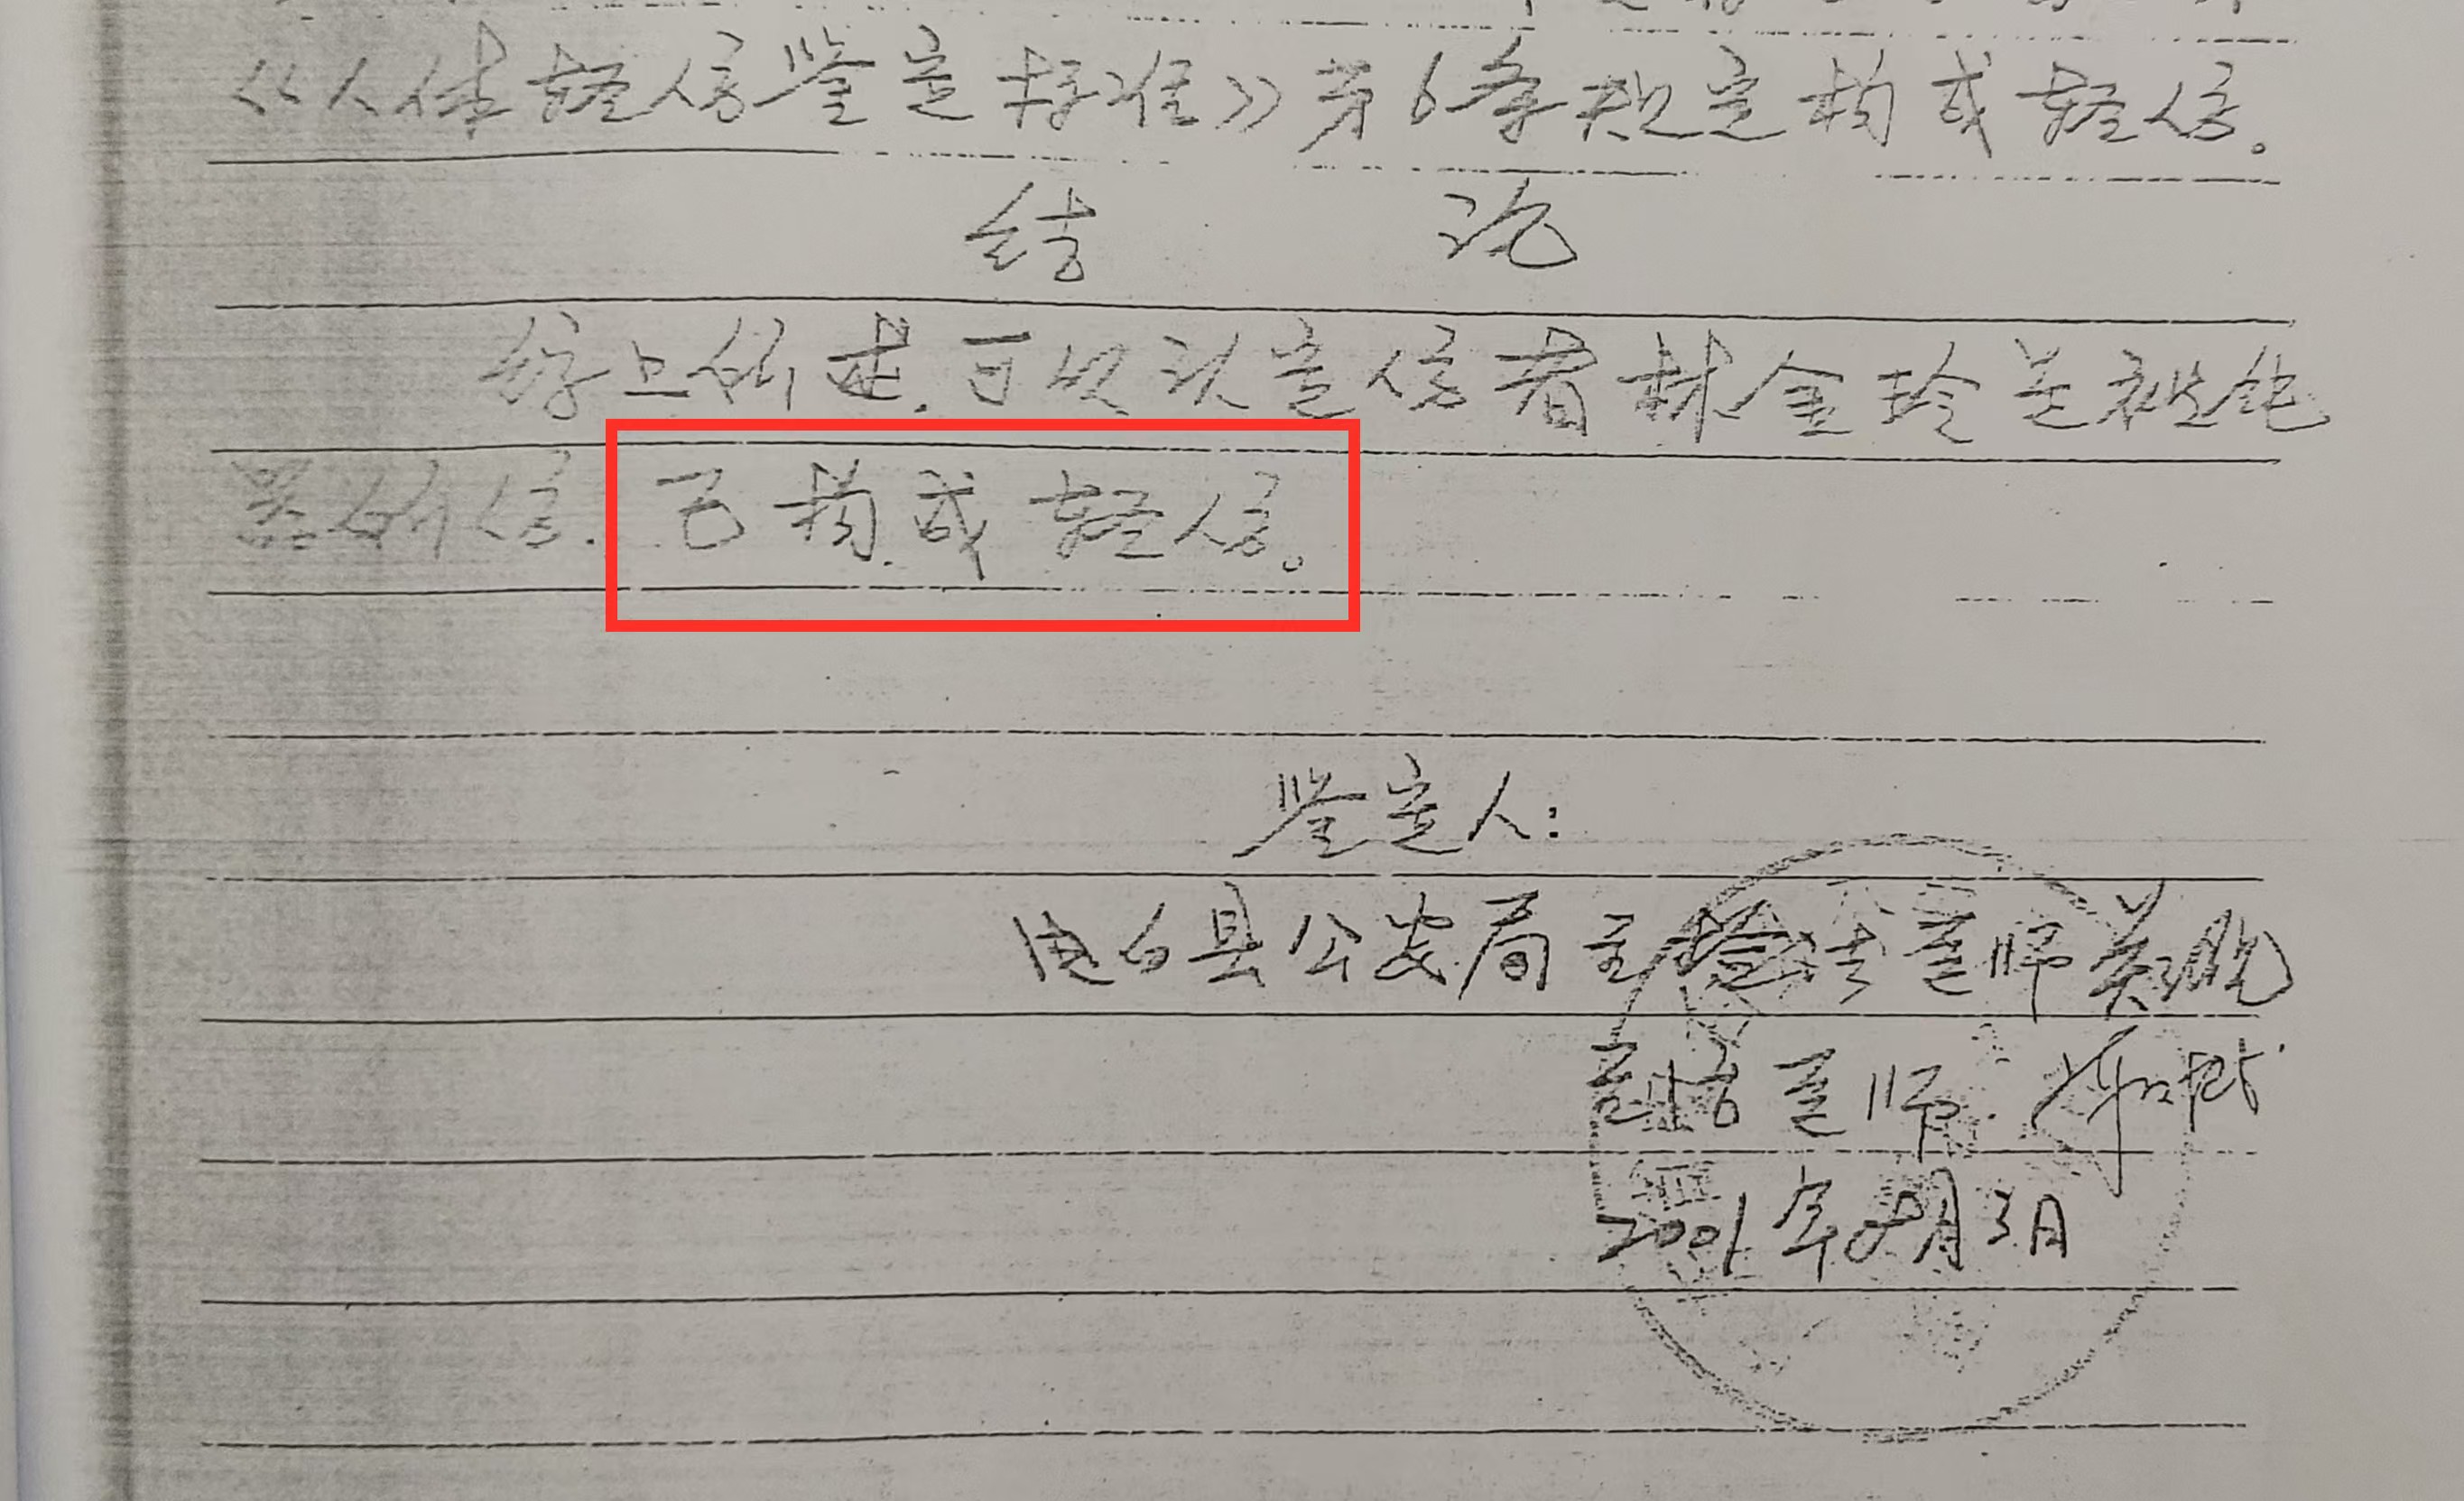 《人体轻伤鉴定标准》第6条规定构成轻伤。
结 论
综上所述,可以认定伤者林金玲是被钝
器所伤.已构成轻伤。
鉴定人:
电白县公安局主检法医师
主检法医师.
2001年08月3日